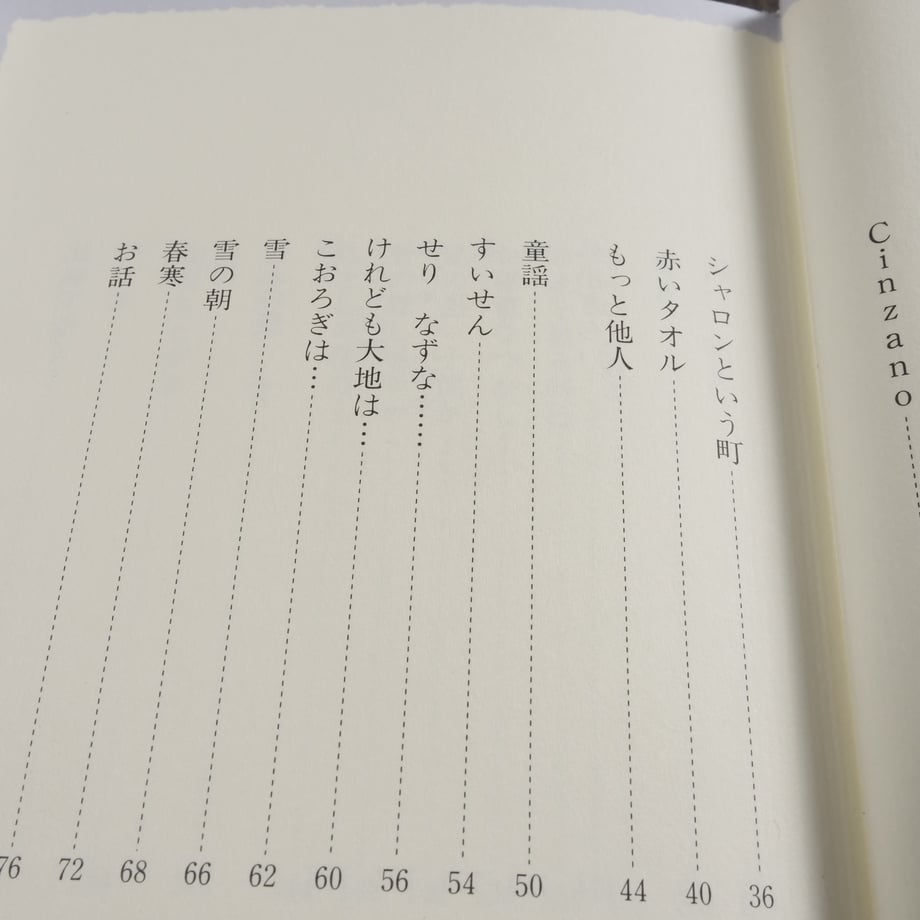 Cinzano
シャロンという町 36
赤いタオル 40
もっと他人 44
童謡 50
すいせん 54
せり　なずな…… 56
けれども大地は… 60
こおろぎは… 62
雪 66
雪の朝 68
春寒 72
お話 76